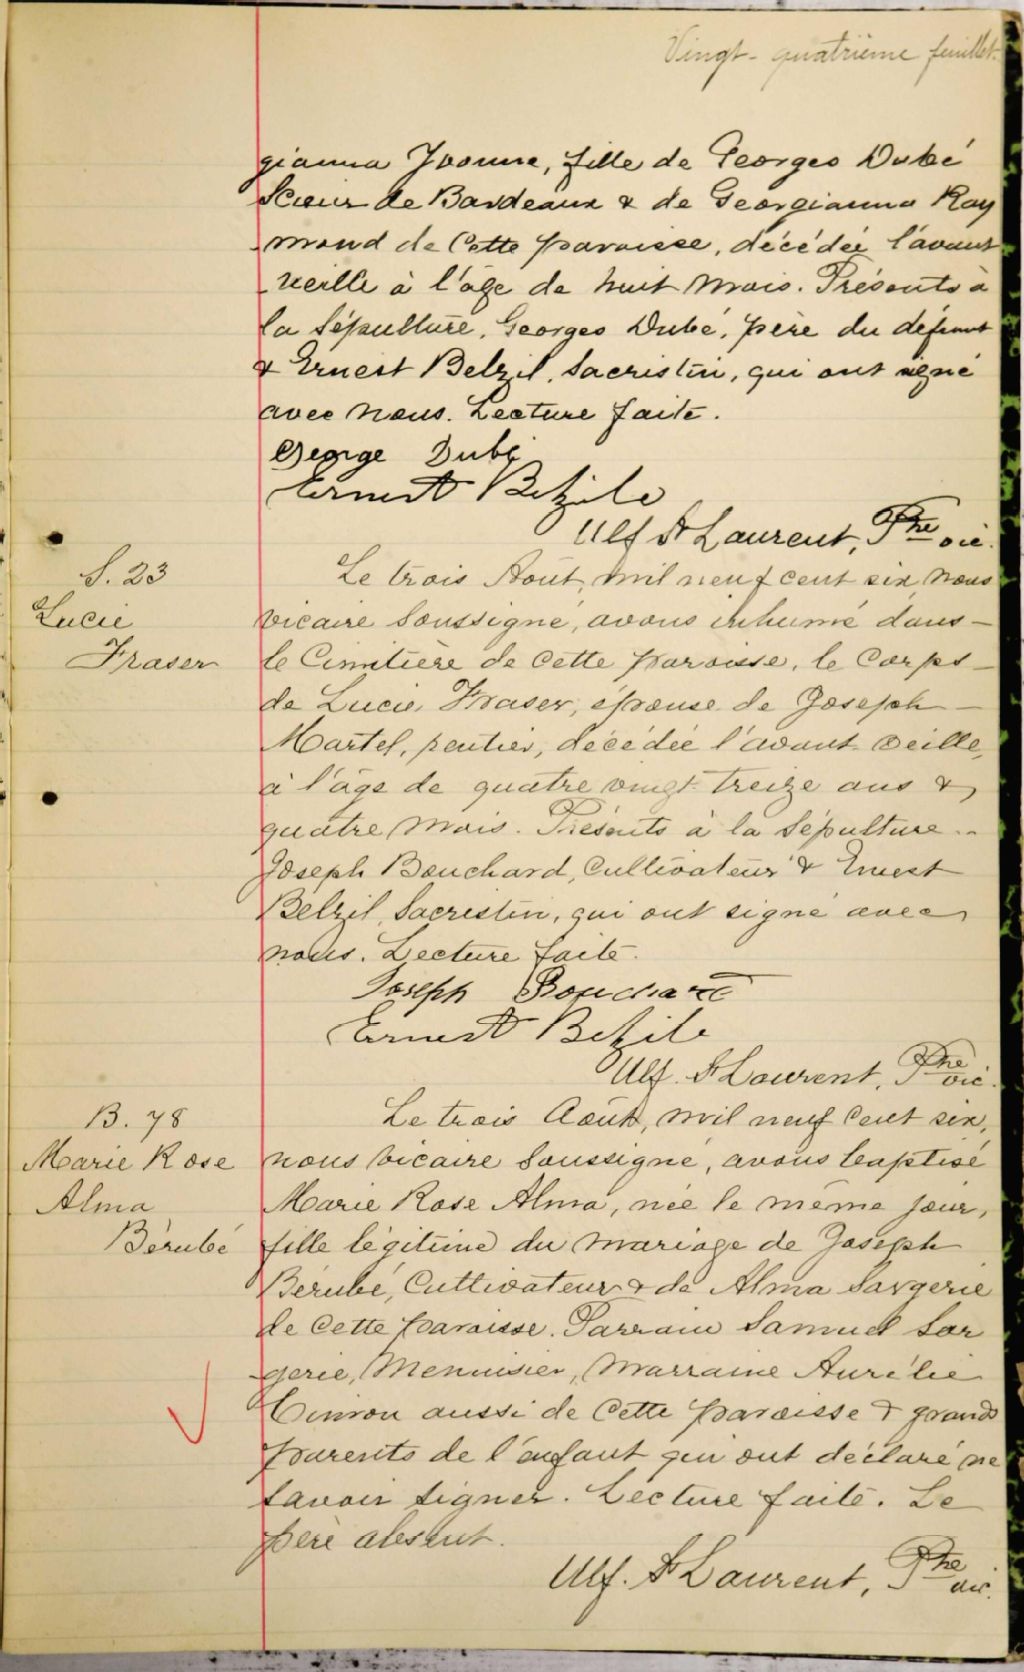 Vingt-quatrième feuillet.
gianna Yvonne, fille de Georges Dubé
Scieur de Bardeaux & de Georgianna Ray
mond de Cette paroisse, décédée l'avant
veille à l'âge de huit mois. Présents à
la Sépulture, Georges Dubé, père du défunt
& Ernest Belzil, Sacristin, qui ont signé
avec nous. Lecture faite.
George Dubé
Ernest Belzile
Ulf St Laurent, Ptre vic.
S. 23
Lucie
Fraser
Le trois Août, mil neuf cent six, nous
vicaire Soussigné, avons inhumé dans
le Cimitière de Cette paroisse, le Corps
de Lucie Fraser, épouse de Joseph
Martel, rentier, décédée l'avant-veille,
à l'âge de quatre vingt-treize ans &
quatre mois. Présents à la Sépulture
Joseph Bouchard, Cultivateur & Ernest
Belzil, Sacristin, qui ont signé avec
nous. Lecture faite.
Joseph Bouchard
Ernest Belzile
Ulf. St Laurent, Ptre vic.
B. 78
Marie Rose
Alma
Bérubé
Le trois Août, mil neuf Cent six,
nous vicaire Soussigné, avons baptisé
Marie Rose Alma, née le même jour,
fille légitime du mariage de Joseph
Bérubé, Cultivateur & de Alma Sargerie
de Cette paroisse. Parrain Samuel Sar
gerie, Menuisier, Marraine Aurélie
aussi de Cette paroisse & grands
parents de l'enfant qui ont déclaré ne
savoir signer. Lecture faite. Le
père absent.
Ulf. St Laurent, Ptre vic.